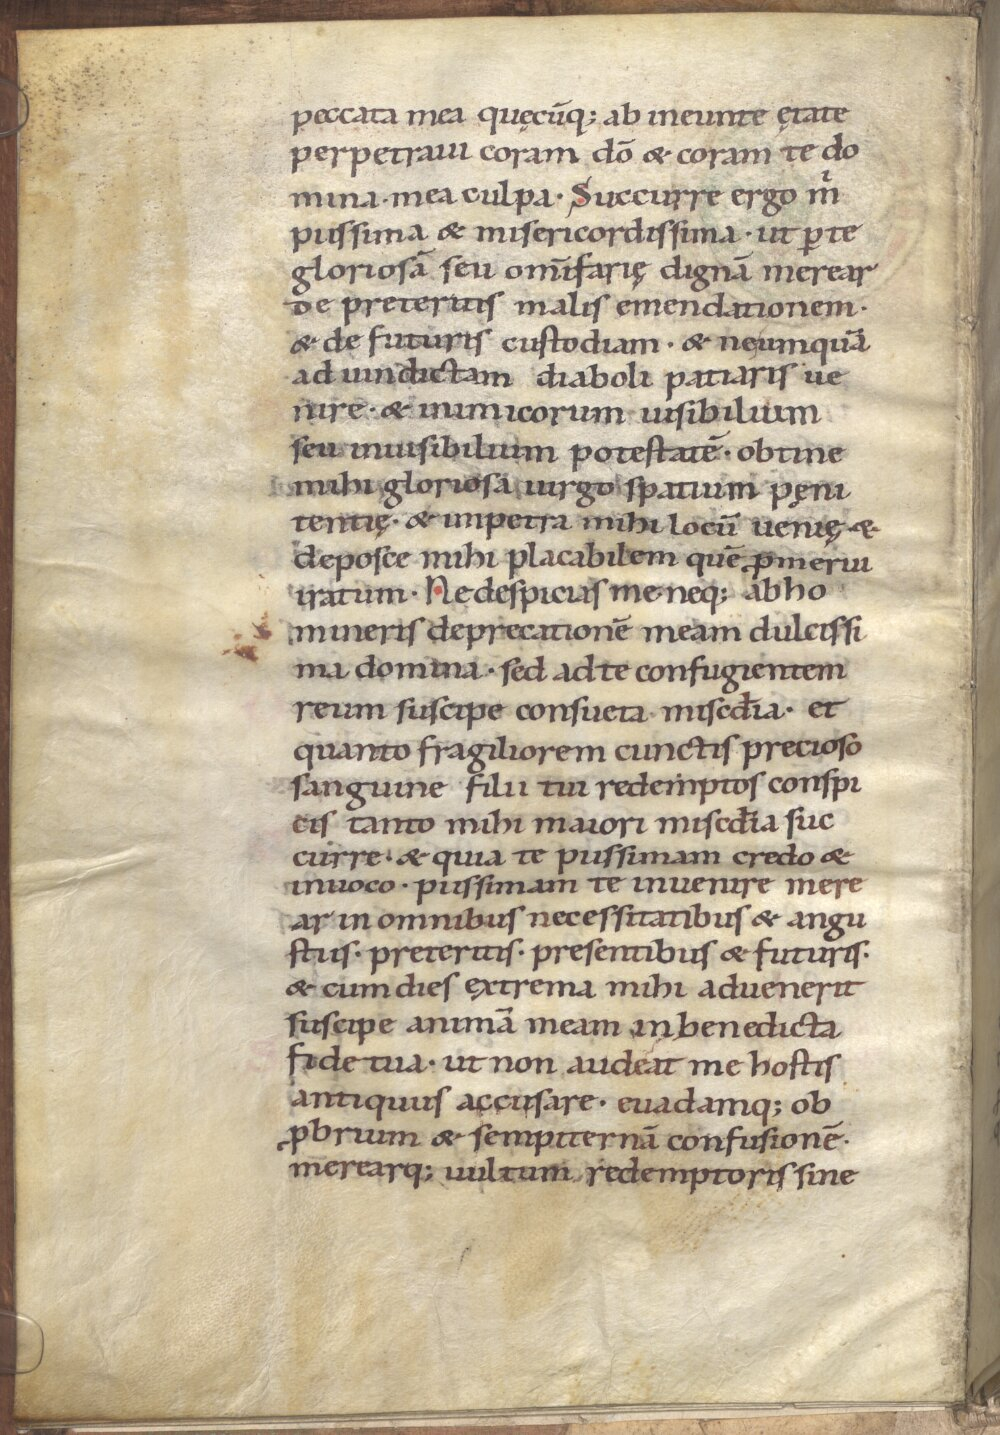 peccata mea quęcūq; ab ineunte ętate
perpetraui coram dō & coram te do
mina · mea culpa · Succurre ergo m̄
piissima & misericordissima · ut ꝑ te
gloriosā seu omīfarię dignā merear
de preteritis malis emendationem ·
& de futuris custodiam · & neumquā
ad uindictam diaboli patiaris ue
nire · & inimicorum uisibilium
seu inuisibilium potestatē · obtine
mihi gloriosa uirgo spatium pęni
tentię · & impetra mihi locū uenię &
deposce mihi placabilem quē ꝓmerui
iratum · Ne despicias me neq; abho
mineris deprecationē meam dulcissi
ma domina · sed ad te confugientem
reum suscipe consueta misc̄dia · et
quanto fragiliorem cunctis precioso
sanguine filii tui redemptos conspi
cis tanto mihi maiori misc̄dia suc
curre · & quia te piissimam credo &
inuoco · piissimam te inuenire mere
ar in omnibus necessitatibus & angu
stiis · preteritis · presentibus & futuris ·
& cum dies extrema mihi aduenerit
suscipe animā meam in benedicta
fide tua · ut non audeat me hostis
antiquus accusare · euadamq; ob
ꝓbrium & sempiternā confusionē ·
merearq; uultum redemptoris sine